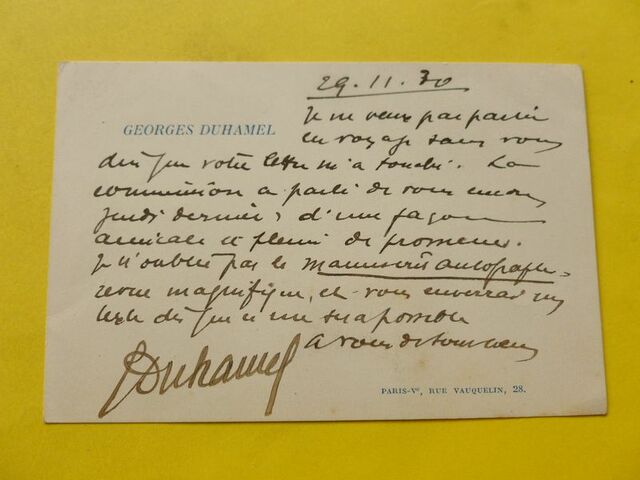 29.11.30
GEORGES DUHAMEL
Je ne veux pas partir
en voyage sans vous
dire que votre lettre m'a touché. La
commission a parlé de vous encore
jeudi dernier, d'une façon
amicale et pleine de promesses.
Je n'oublie pas le manuscrit autographe,
revue magnifique, et vous enverrai un
texte dès que ce me sera possible
A vous de tout cœur
GDuhamel
PARIS-Ve, RUE VAUQUELIN, 28.